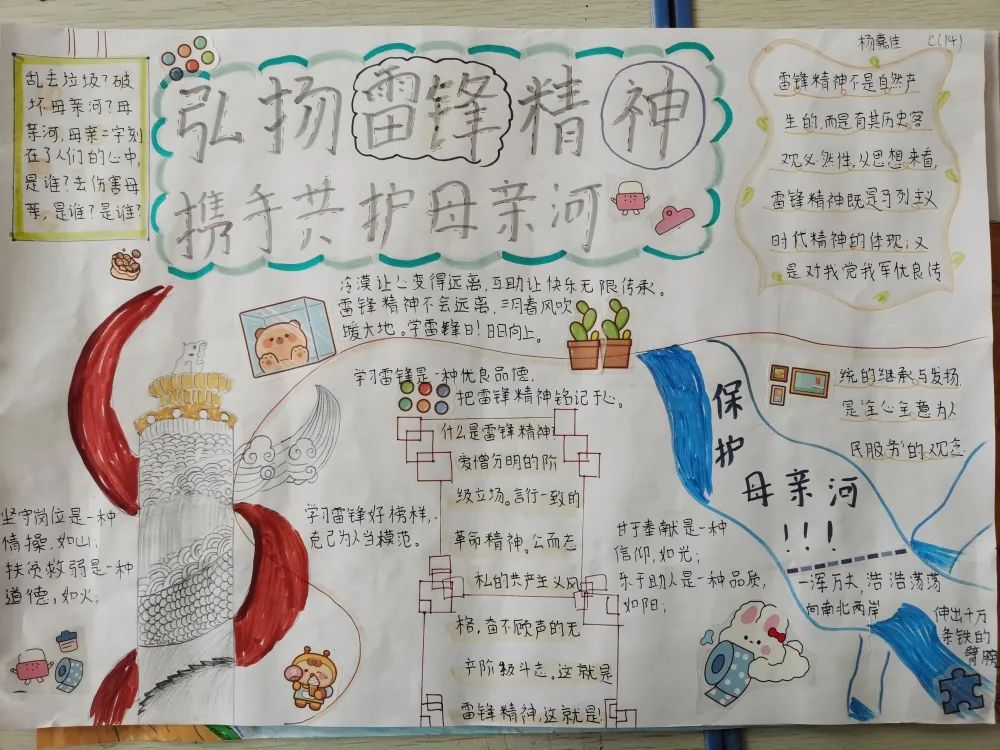 杨嘉佳 C(14)
弘扬雷锋精神
携手共护母亲河
乱丢垃圾?破
坏母亲河?母
亲河,母亲二字刻
在了人们的心中,
是谁?去伤害母
亲,是谁?是谁?
雷锋精神不是自然产
生的,而是有其历史客
观必然性,从思想来看,
雷锋精神既是马列主义
时代精神的体现;又
是对我党我军优良传
统的继承与发扬
是全心全意为人
民服务的观念
冷漠让心变得远离,互助让快乐无限传承。
雷锋精神不会远离,三月春风吹
暖大地。学雷锋日!日日向上。
学习雷锋是一种优良品德,
把雷锋精神铭记于心。
什么是雷锋精神?
爱憎分明的阶
级立场。言行一致的
革命精神。公而忘
私的共产主义风
格,奋不顾声的无
产阶级斗志。这就是
雷锋精神,这就是!
坚守岗位是一种
情操,如山;
扶贫救弱是一种
道德,如火;
学习雷锋好榜样,
克己为人当模范。
甘于奉献是一种
信仰,如光;
乐于助人是一种品质,
如阳;
保护
母亲河
!!!
一浑万木,浩浩荡荡
向南北两岸
伸出千万
条铁的
臂膀